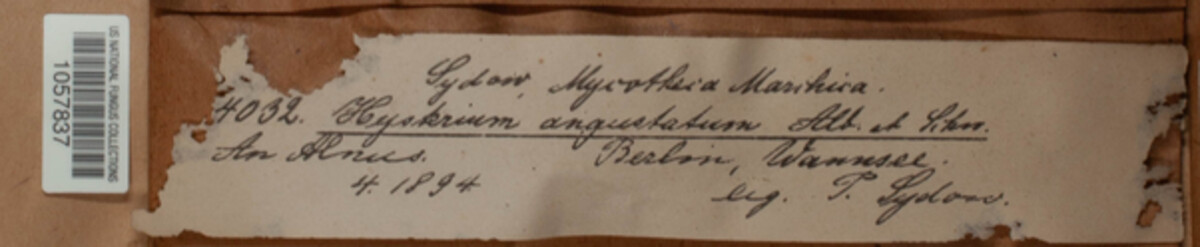 US NATIONAL FUNGUS COLLECTIONS
1057837
Sydow, Mycotheca Marchica.
4032. Hysterium angustatum Alb. et Schw.
An Alnus. Berlin, Wannsee.
4. 1894 leg. P. Sydow.